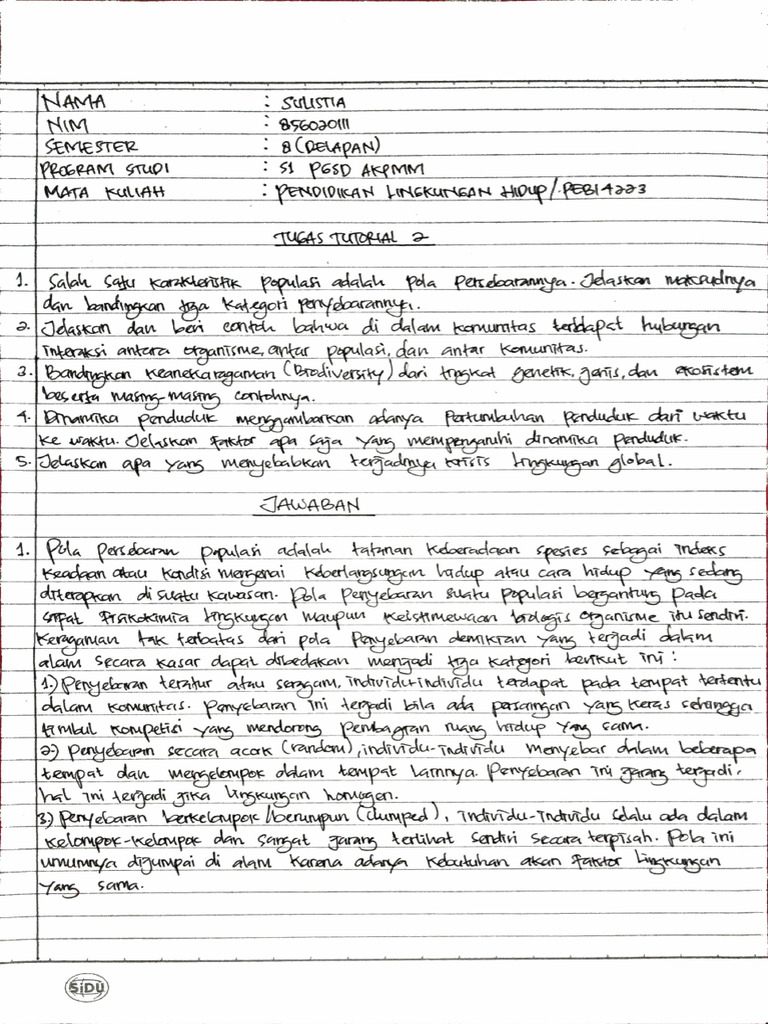 NAMA : SULISTIA
NIM : 856020111
SEMESTER : 8 (DELAPAN)
PROGRAM STUDI : S1 PGSD AKPMM
MATA KULIAH : PENDIDIKAN LINGKUNGAN HIDUP/PEBI4223
TUGAS TUTORIAL 2
1. Salah satu karakteristik populasi adalah pola persebarannya. Jelaskan maksudnya
dan bandingkan tiga kategori penyebarannya.
2. Jelaskan dan beri contoh bahwa di dalam komunitas terdapat hubungan
interaksi antara organisme, antar populasi, dan antar komunitas.
3. Bandingkan keanekaragaman (Biodiversity) dari tingkat genetik, jenis, dan ekosistem
beserta masing-masing contohnya.
4. Dinamika penduduk menggambarkan adanya pertumbuhan penduduk dari waktu
ke waktu. Jelaskan faktor apa saja yang mempengaruhi dinamika penduduk.
5. Jelaskan apa yang menyebabkan terjadinya krisis lingkungan global.
JAWABAN
1. Pola persebaran populasi adalah tatanan keberadaan spesies sebagai indeks
keadaan atau kondisi mengenai keberlangsungan hidup atau cara hidup yang sedang
diterapkan di suatu kawasan. Pola penyebaran suatu populasi bergantung pada
sifat fisikokimia lingkungan maupun keistimewaan biologis organisme itu sendiri.
Keragaman tak terbatas dari pola penyebaran demikian yang terjadi dalam
alam secara kasar dapat dibedakan menjadi tiga kategori berikut ini :
1.) Penyebaran teratur atau seragam, individu-individu terdapat pada tempat tertentu
dalam komunitas. Penyebaran ini terjadi bila ada persaingan yang keras sehingga
timbul kompetisi yang mendorong pembagian ruang hidup yang sama.
2) Penyebaran secara acak (random), individu-individu menyebar dalam beberapa
tempat dan mengelompok dalam tempat lainnya. Penyebaran ini jarang terjadi,
hal ini terjadi jika lingkungan homogen.
3) Penyebaran berkelompok/berumpun (clumped), individu-individu selalu ada dalam
kelompok-kelompok dan sangat jarang terlihat sendiri secara terpisah. Pola ini
umumnya dijumpai di alam karena adanya kebutuhan akan faktor lingkungan
yang sama.
SiDU